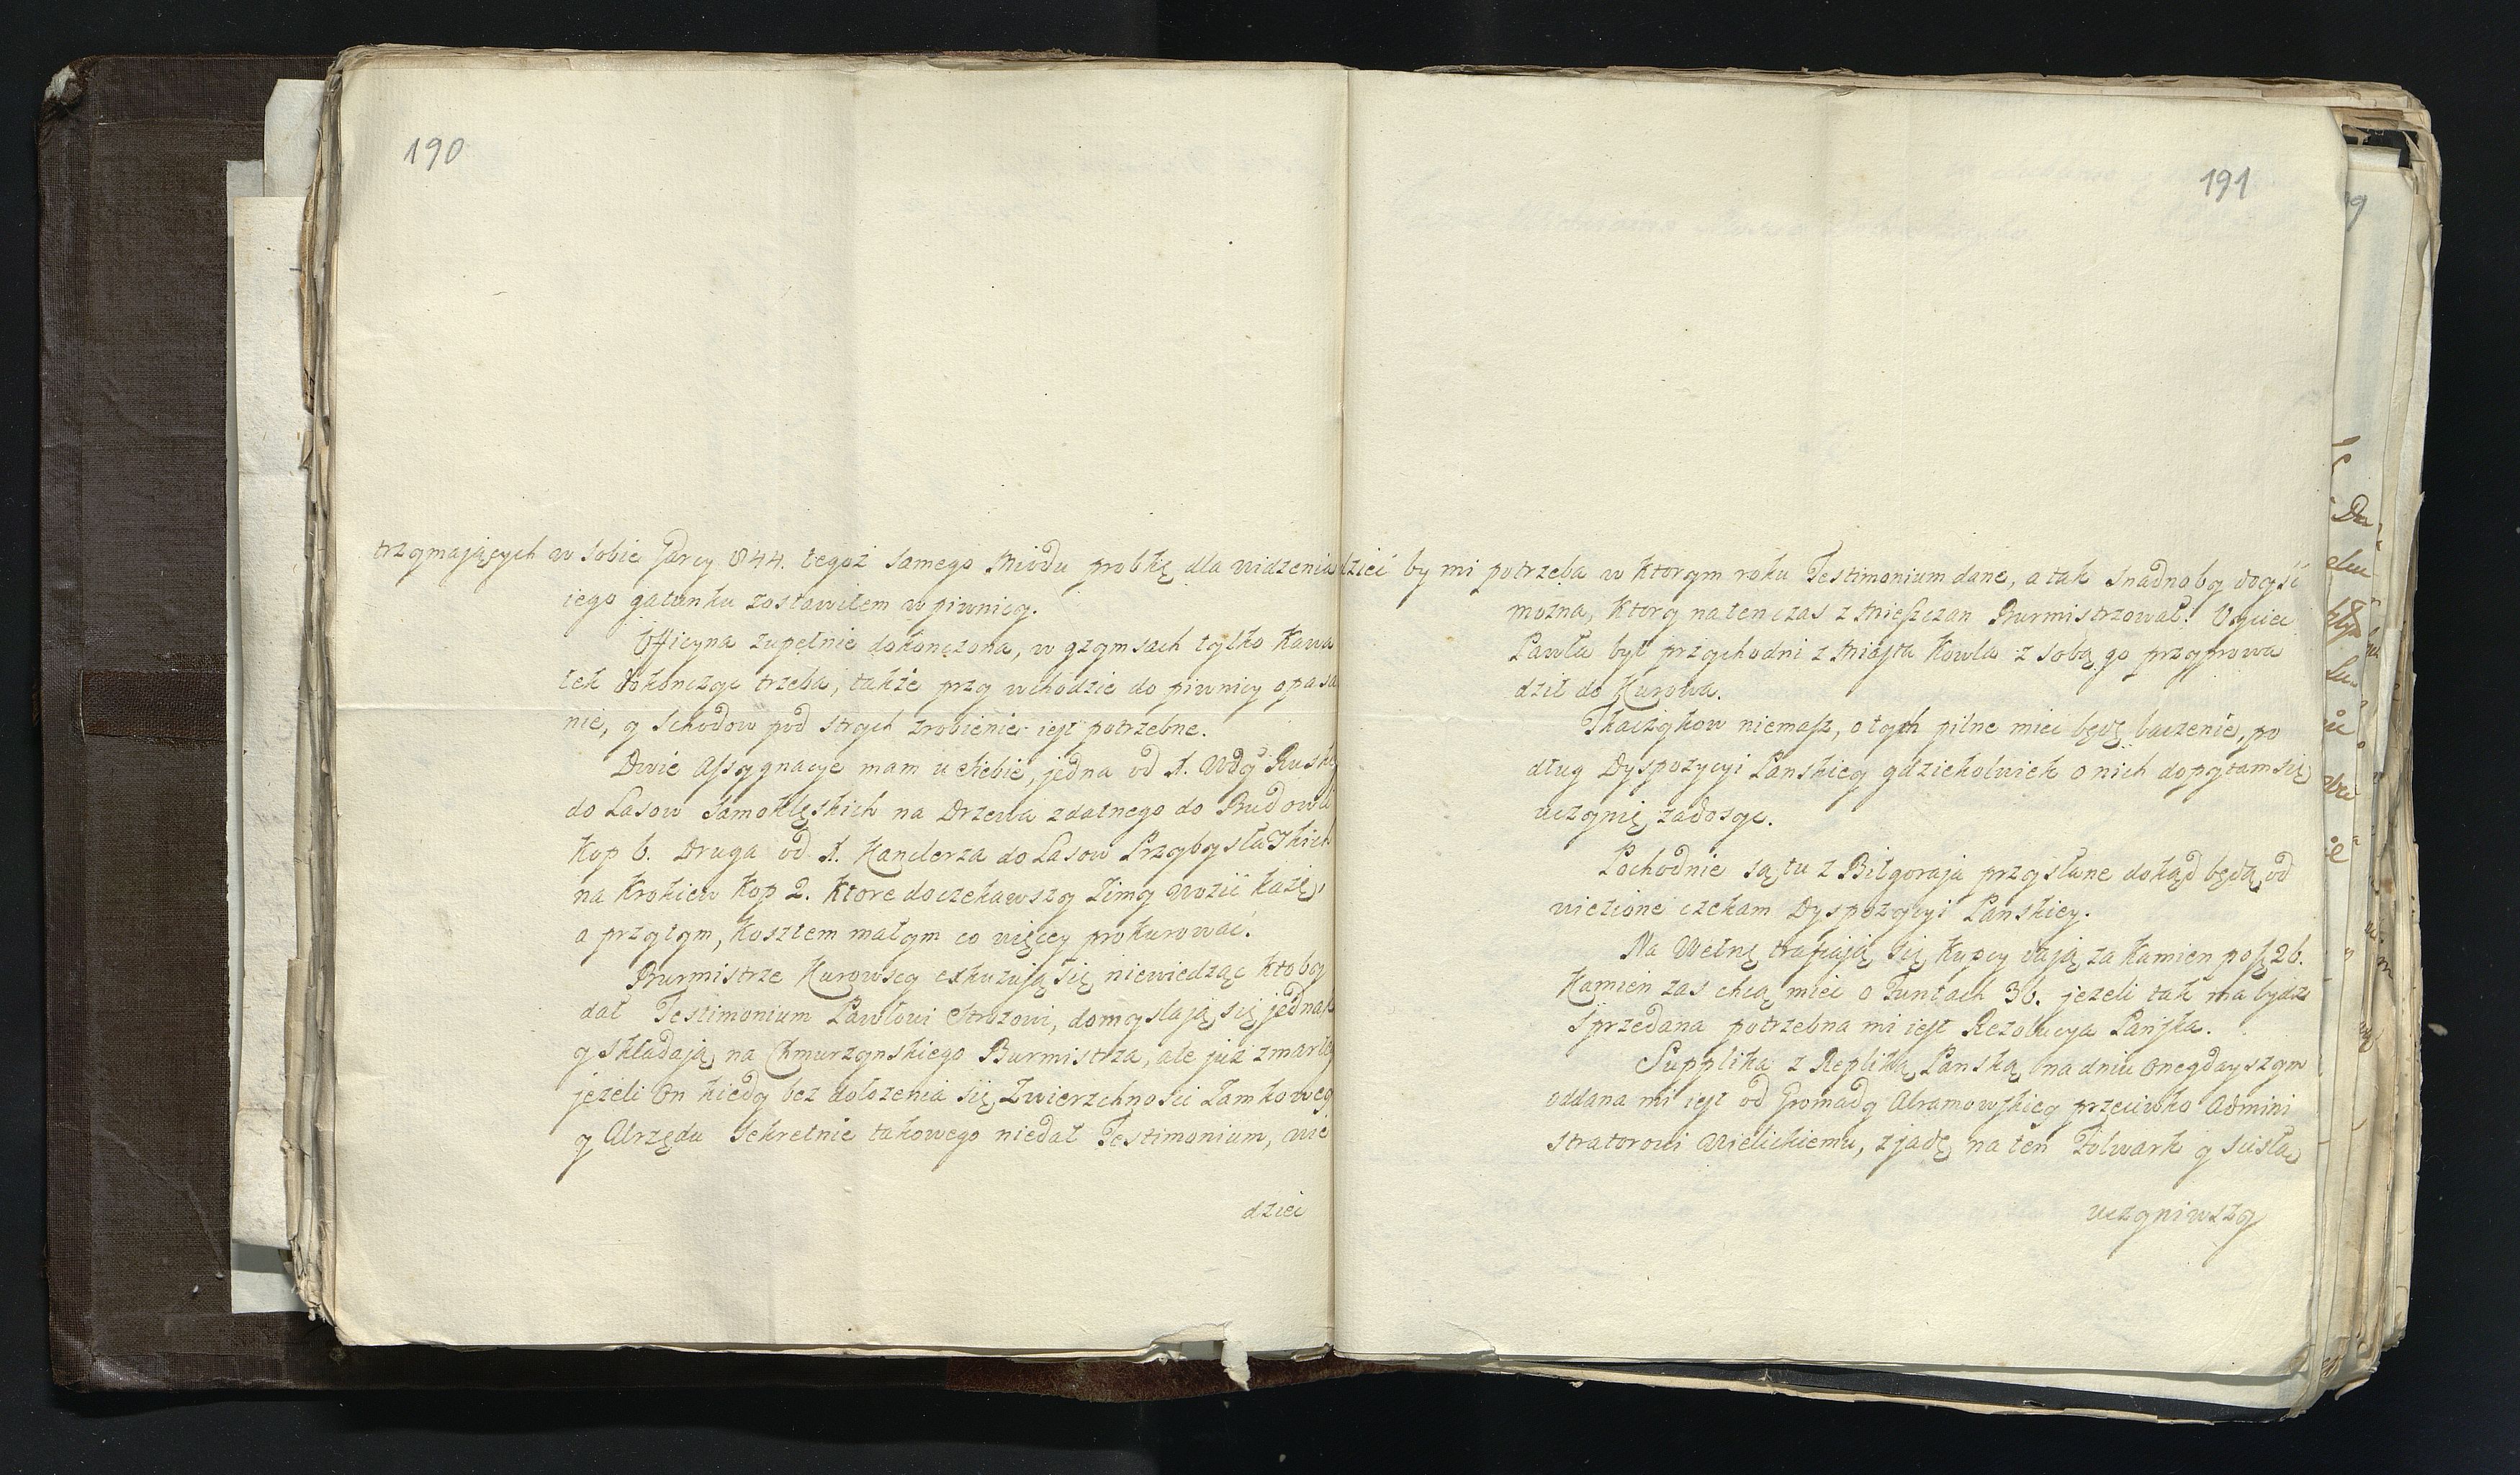 190
trzymaiących w sobie Garcy 844. tegoż samego Miodu probkę dla widzenia
iego gatunku zostawiłem w piwnicy.
Officyna zupełnie dokończona, w gzymsach tylko Kawa
łek dokonczyc trzeba, także przy wchodzie do piwnicy opasa
nie, y Schodow pod strych zrobienie iest potrzebne.
Dwie Assygnacye mam u siebie, jedna od J.
do Lasow Samoklęskich na Drzewa zdatnego do Budowli
Kop 6. Druga od J. Kanclerza do Lasow Przybysławskich
na Krokiew Kop 2. Ktore doczekawszy Zimy wozić każę,
a przytym, Kosztem małym co więcey prokurować.
Burmistrze Kurowscy exkuzują się, niewiedząc ktoby
dał Testimonium Pawłowi Strozowi, domyslają się jednak
y składają na Chmurzynskiego Burmistrza, ale już zmarłeg
jeżeli On kiedy bez dołożenia się Zwierzchnosci Zamkoweg
y Urzędu Sekretnie takowego niedał Testimonium, wie
dziec
191
dzieć by mi potrzeba w ktorym roku Testimonium dane, a tak snadnoby doyść
można, ktory natenczas z Mieszczan Burmistrzował. Oyciec
Pawła był przychodni z Miasta Kowla z sobą go przyprowa
dził do Kurowa.
Tkaczykow niemasz, o tych pilne miec będę baczenie, po
dług Dyspozycyi Panskiey gdziekolwiek o nich dopytam się
uczynię zadosyc.
Pochodnie są tu z Biłgoraja przysłane dokąd będą od
wiezione czekam Dyspozycyi Panskiey.
Na Wełnę trafiają się Kupcy dają za Kamien po 26.
Kamien zas chcą miec o Funtach 36. jeżeli tak ma bydz
sprzedana potrzebna mi iest Rezolucya Panska.
Supplika z Repliką Panską na dniu onegdayszym
oddana mi iest od Gromady Abramowskiey przeciwko Admini
stratorowi Wielickiemu, zjadę na ten Folwark y scisłą
uczyniwszy